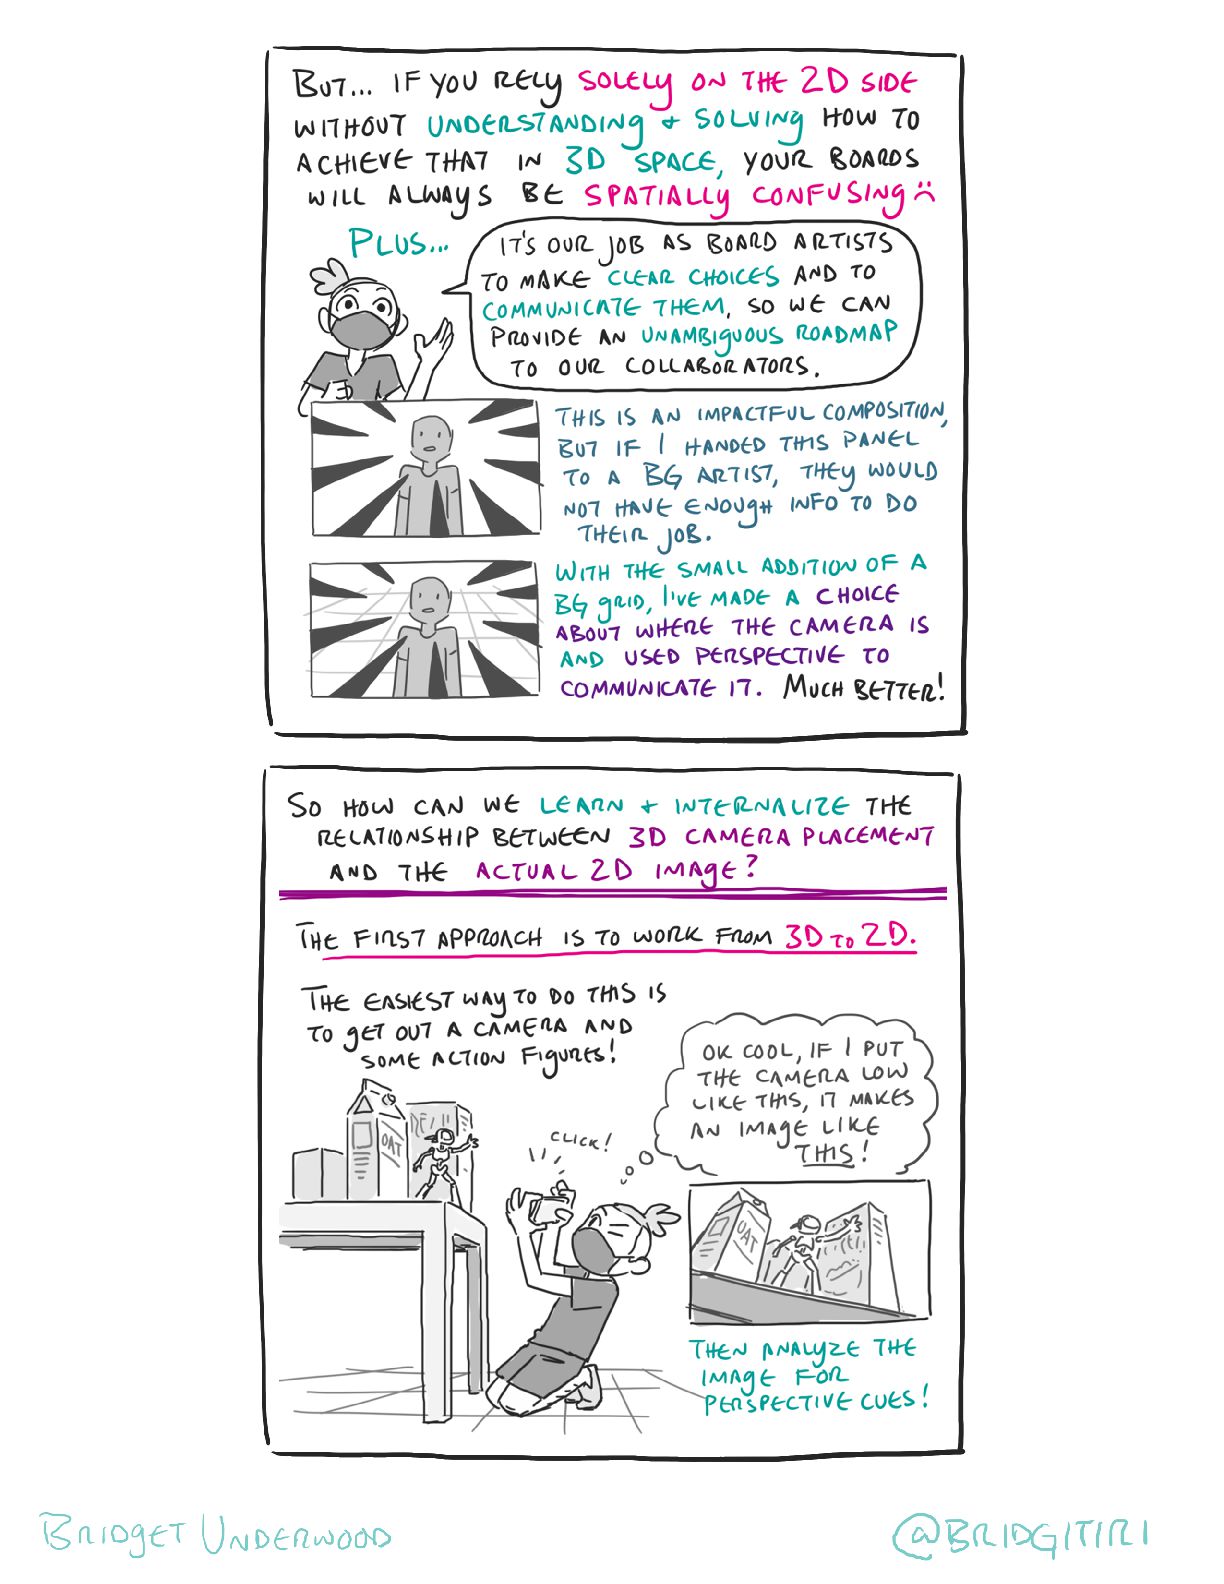 BUT... IF YOU RELY SOLELY ON THE 2D SIDE
WITHOUT UNDERSTANDING + SOLVING HOW TO
ACHIEVE THAT IN 3D SPACE, YOUR BOARDS
WILL ALWAYS BE SPATIALLY CONFUSING :(
PLUS...
IT'S OUR JOB AS BOARD ARTISTS
TO MAKE CLEAR CHOICES AND TO
COMMUNICATE THEM, SO WE CAN
PROVIDE AN UNAMBIGUOUS ROADMAP
TO OUR COLLABORATORS.
THIS IS AN IMPACTFUL COMPOSITION,
BUT IF I HANDED THIS PANEL
TO A BG ARTIST, THEY WOULD
NOT HAVE ENOUGH INFO TO DO
THEIR JOB.
WITH THE SMALL ADDITION OF A
BG GRID, I'VE MADE A CHOICE
ABOUT WHERE THE CAMERA IS
AND USED PERSPECTIVE TO
COMMUNICATE IT. MUCH BETTER!
SO HOW CAN WE LEARN + INTERNALIZE THE
RELATIONSHIP BETWEEN 3D CAMERA PLACEMENT
AND THE ACTUAL 2D IMAGE?
THE FIRST APPROACH IS TO WORK FROM 3D TO 2D.
THE EASIEST WAY TO DO THIS IS
TO GET OUT A CAMERA AND
SOME ACTION FIGURES!
OK COOL, IF I PUT
THE CAMERA LOW
LIKE THIS, IT MAKES
AN IMAGE LIKE
THIS!
CLICK!
OAT
OAT
THEN ANALYZE THE
IMAGE FOR
PERSPECTIVE CUES!
BRIDGET UNDERWOOD
@BRIDGITIRI